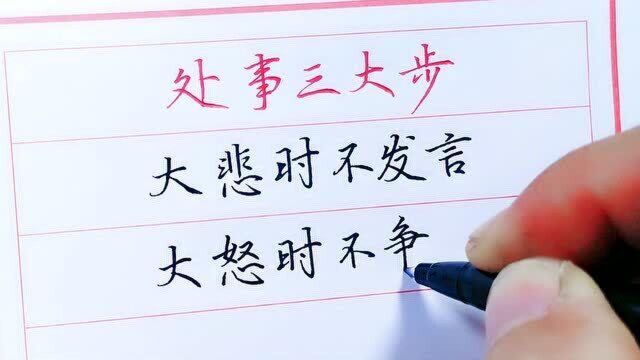 处事三大步
大悲时不发言
大怒时不争